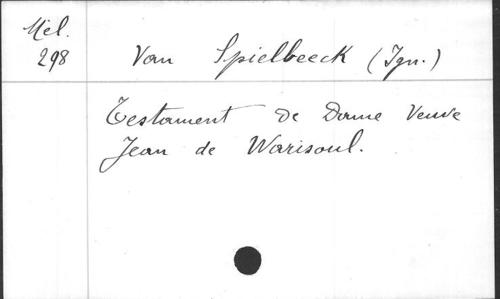 Mél.
298
Van Spielbeeck (Ign.)
Testament de Dame Veuve
Jean de Warisoul.